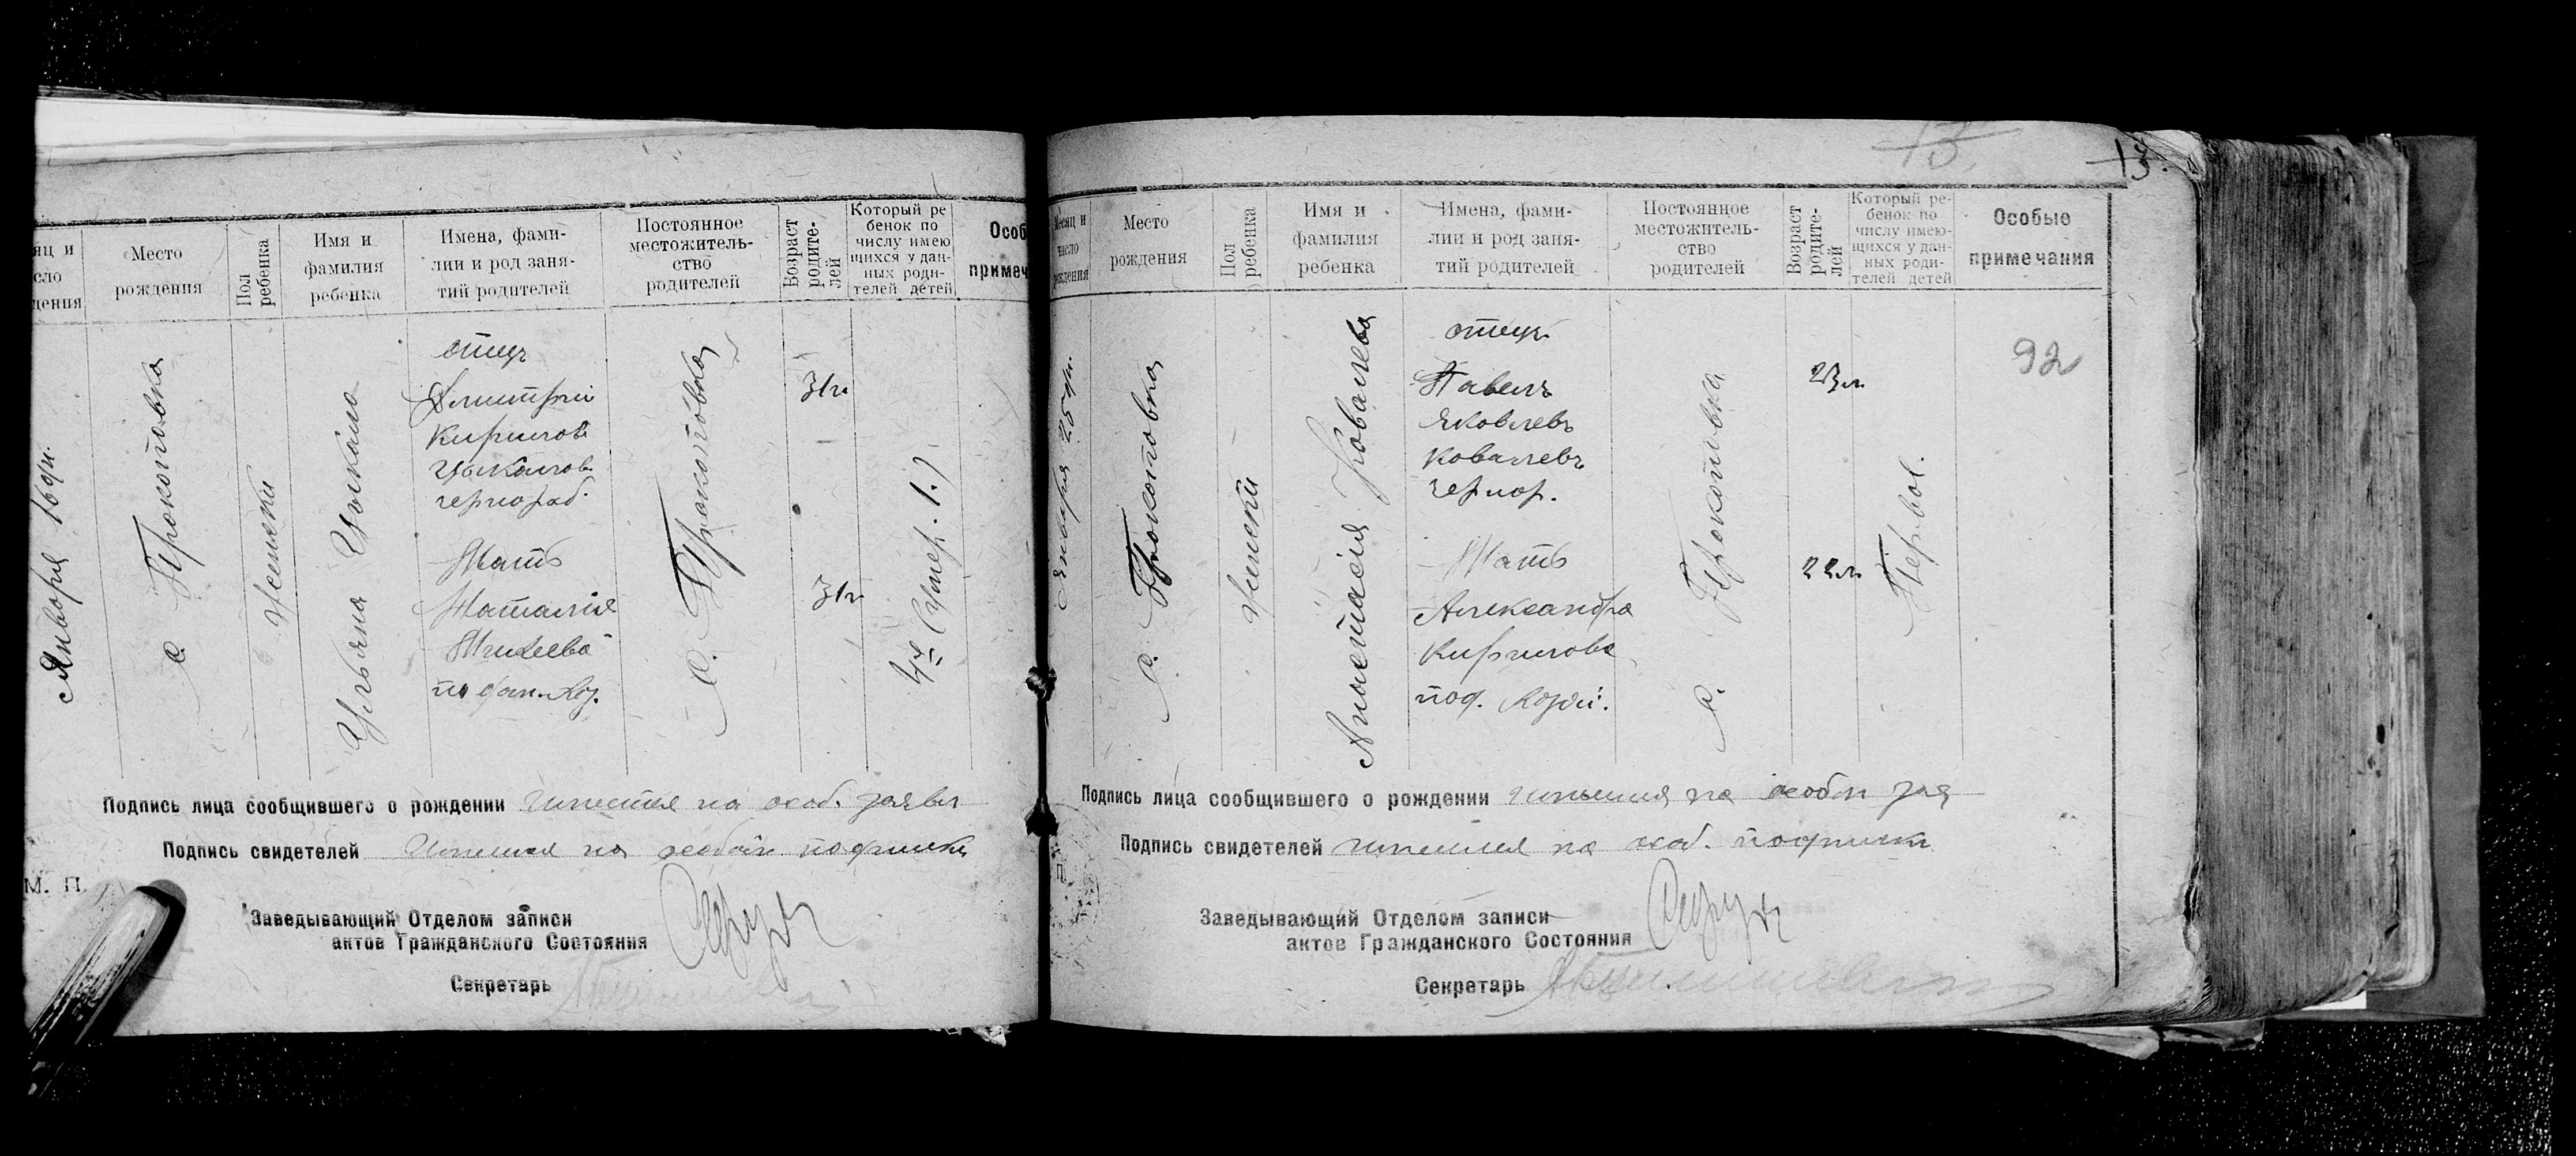 яц и
сло
дения
Место
рождения
Пол
ребенка
Имя и
фамилия
ребенка
Имена, фами-
лии и род заня-
тий родителей
Постоянное
местожитель-
ство
родителей
Возраст
родите-
лей
Который ре
бенок по
числу имею
щихся у дан-
ных роди-
телей детей
Особ
примеч
Января 16 дн.
с. Прокоповка
Женски
Ульяна Цыкало
отец
Дмитрий
Кирилов
Цыкалов
чернораб.
Мать
Наталія
Михеева
по
с. Прокоповка
31г.
31г
4й (умер. 1.)
Подпись лица сообщившего о рождении имеется на особ. заявл
Подпись свидетелей имеется на особой подписки
М. П.
Заведывающий Отделом записи
актов Гражданского Состояния
Секретарь
13
13.
Месяц и
число
рождения
Место
рождения
Пол
ребенка
Имя и
фамилия
ребенка
Имена, фами-
лии и род заня-
тий родителей
Постоянное
местожитель-
ство
родителей
Возраст
родите-
лей
Который ре-
бенок по
числу имею-
щихся у дан-
ных роди-
телей детей
Особые
примечания
Января 25 дн.
с. Прокоповка
Женски
Анастасія Ковалева
отец
Павелъ
Яковлевъ
Ковалевъ
чернор.
Мать
Александра
Кирилова
с. Прокоповка
23л.
22л.
Первой.
92
Подпись лица сообщившего о рождении имеется на особом зая
Подпись свидетелей имеется на особ. подписки
Заведывающий Отделом записи
актов Гражданского Состояния
Секретарь